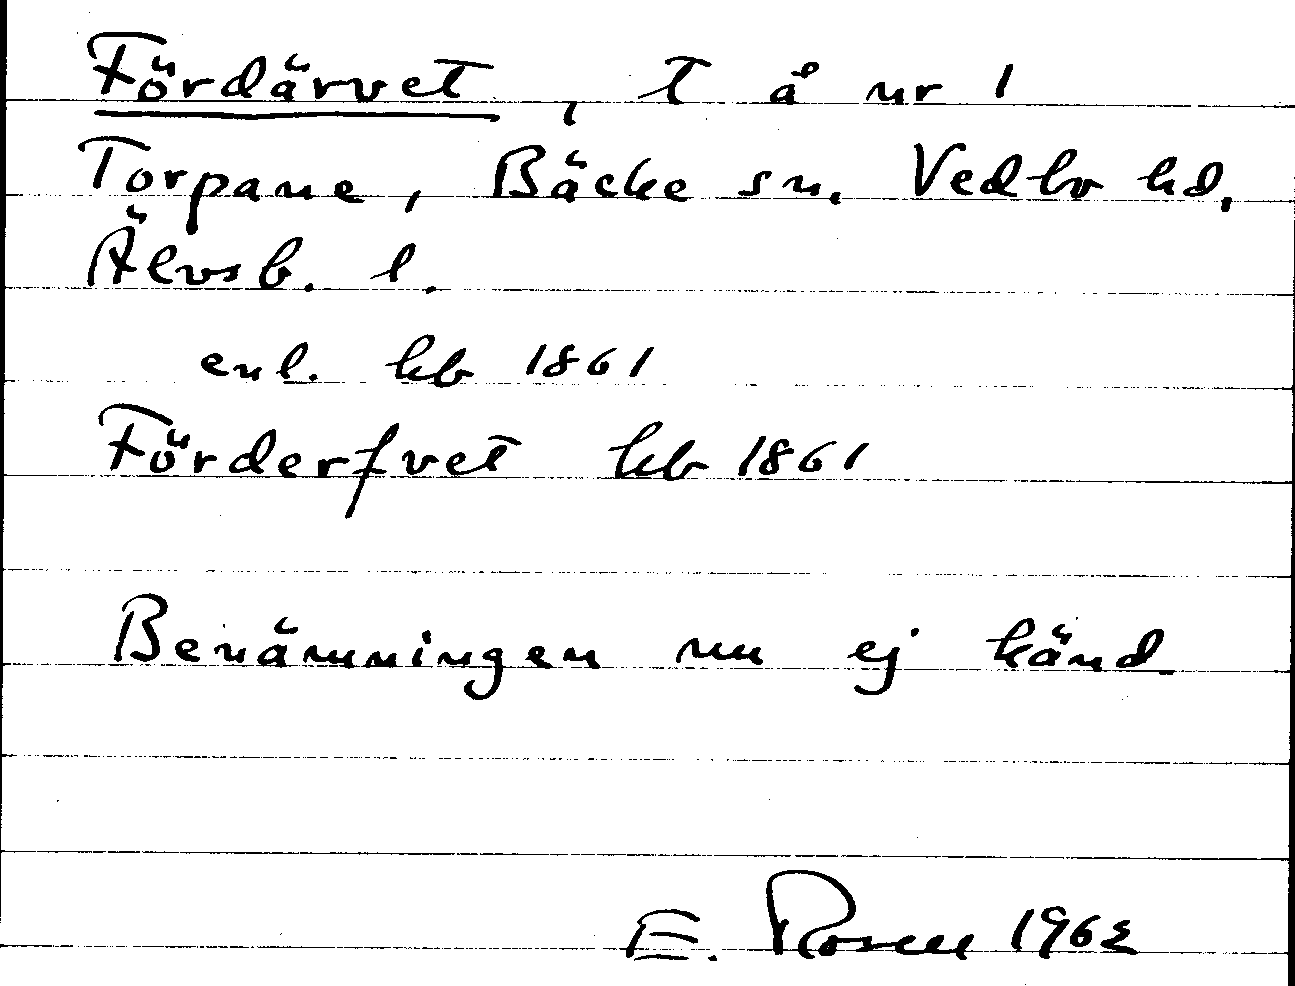 Fördärvet, T å nr 1
Torpane, Bäcke sn. Vedbo hd,
Älvsb. l.
enl. kb 1861
Förderfvet kb 1861
Benämningen nu ej känd
E. Rosell 1962